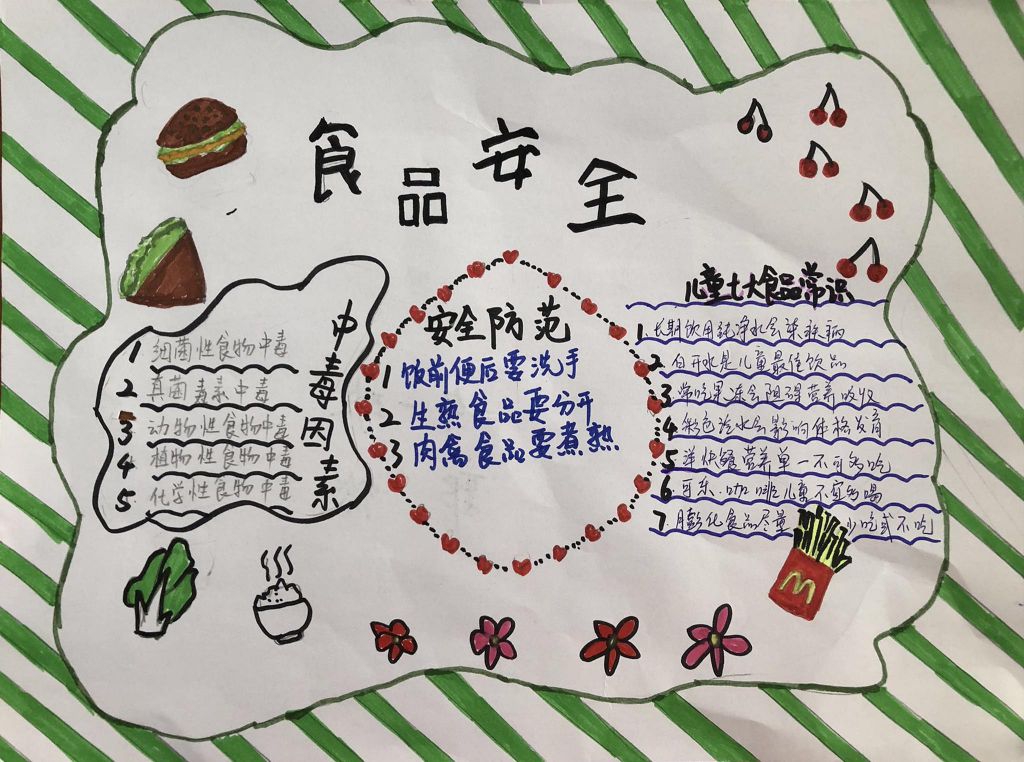 食品安全
中毒因素
1 细菌性食物中毒
2 真菌毒素中毒
3 动物性食物中毒
4 植物性食物中毒
5 化学性食物中毒
安全防范
1 饭前便后要洗手
2 生熟食品要分开
3 肉禽食品要煮熟
儿童七大食品常识
1、长期饮用纯净水会染疾病
2 白开水是儿童最佳饮品
3 常吃果冻会阻碍营养吸收
4 彩色汽水会影响体格发育
5 洋快餐营养单一不可多吃
6 可乐、咖啡儿童不宜多喝
7 膨化食品尽量少吃或不吃
M